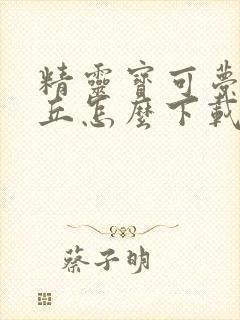 精靈寶可夢
丘怎麼下載
蔡子明